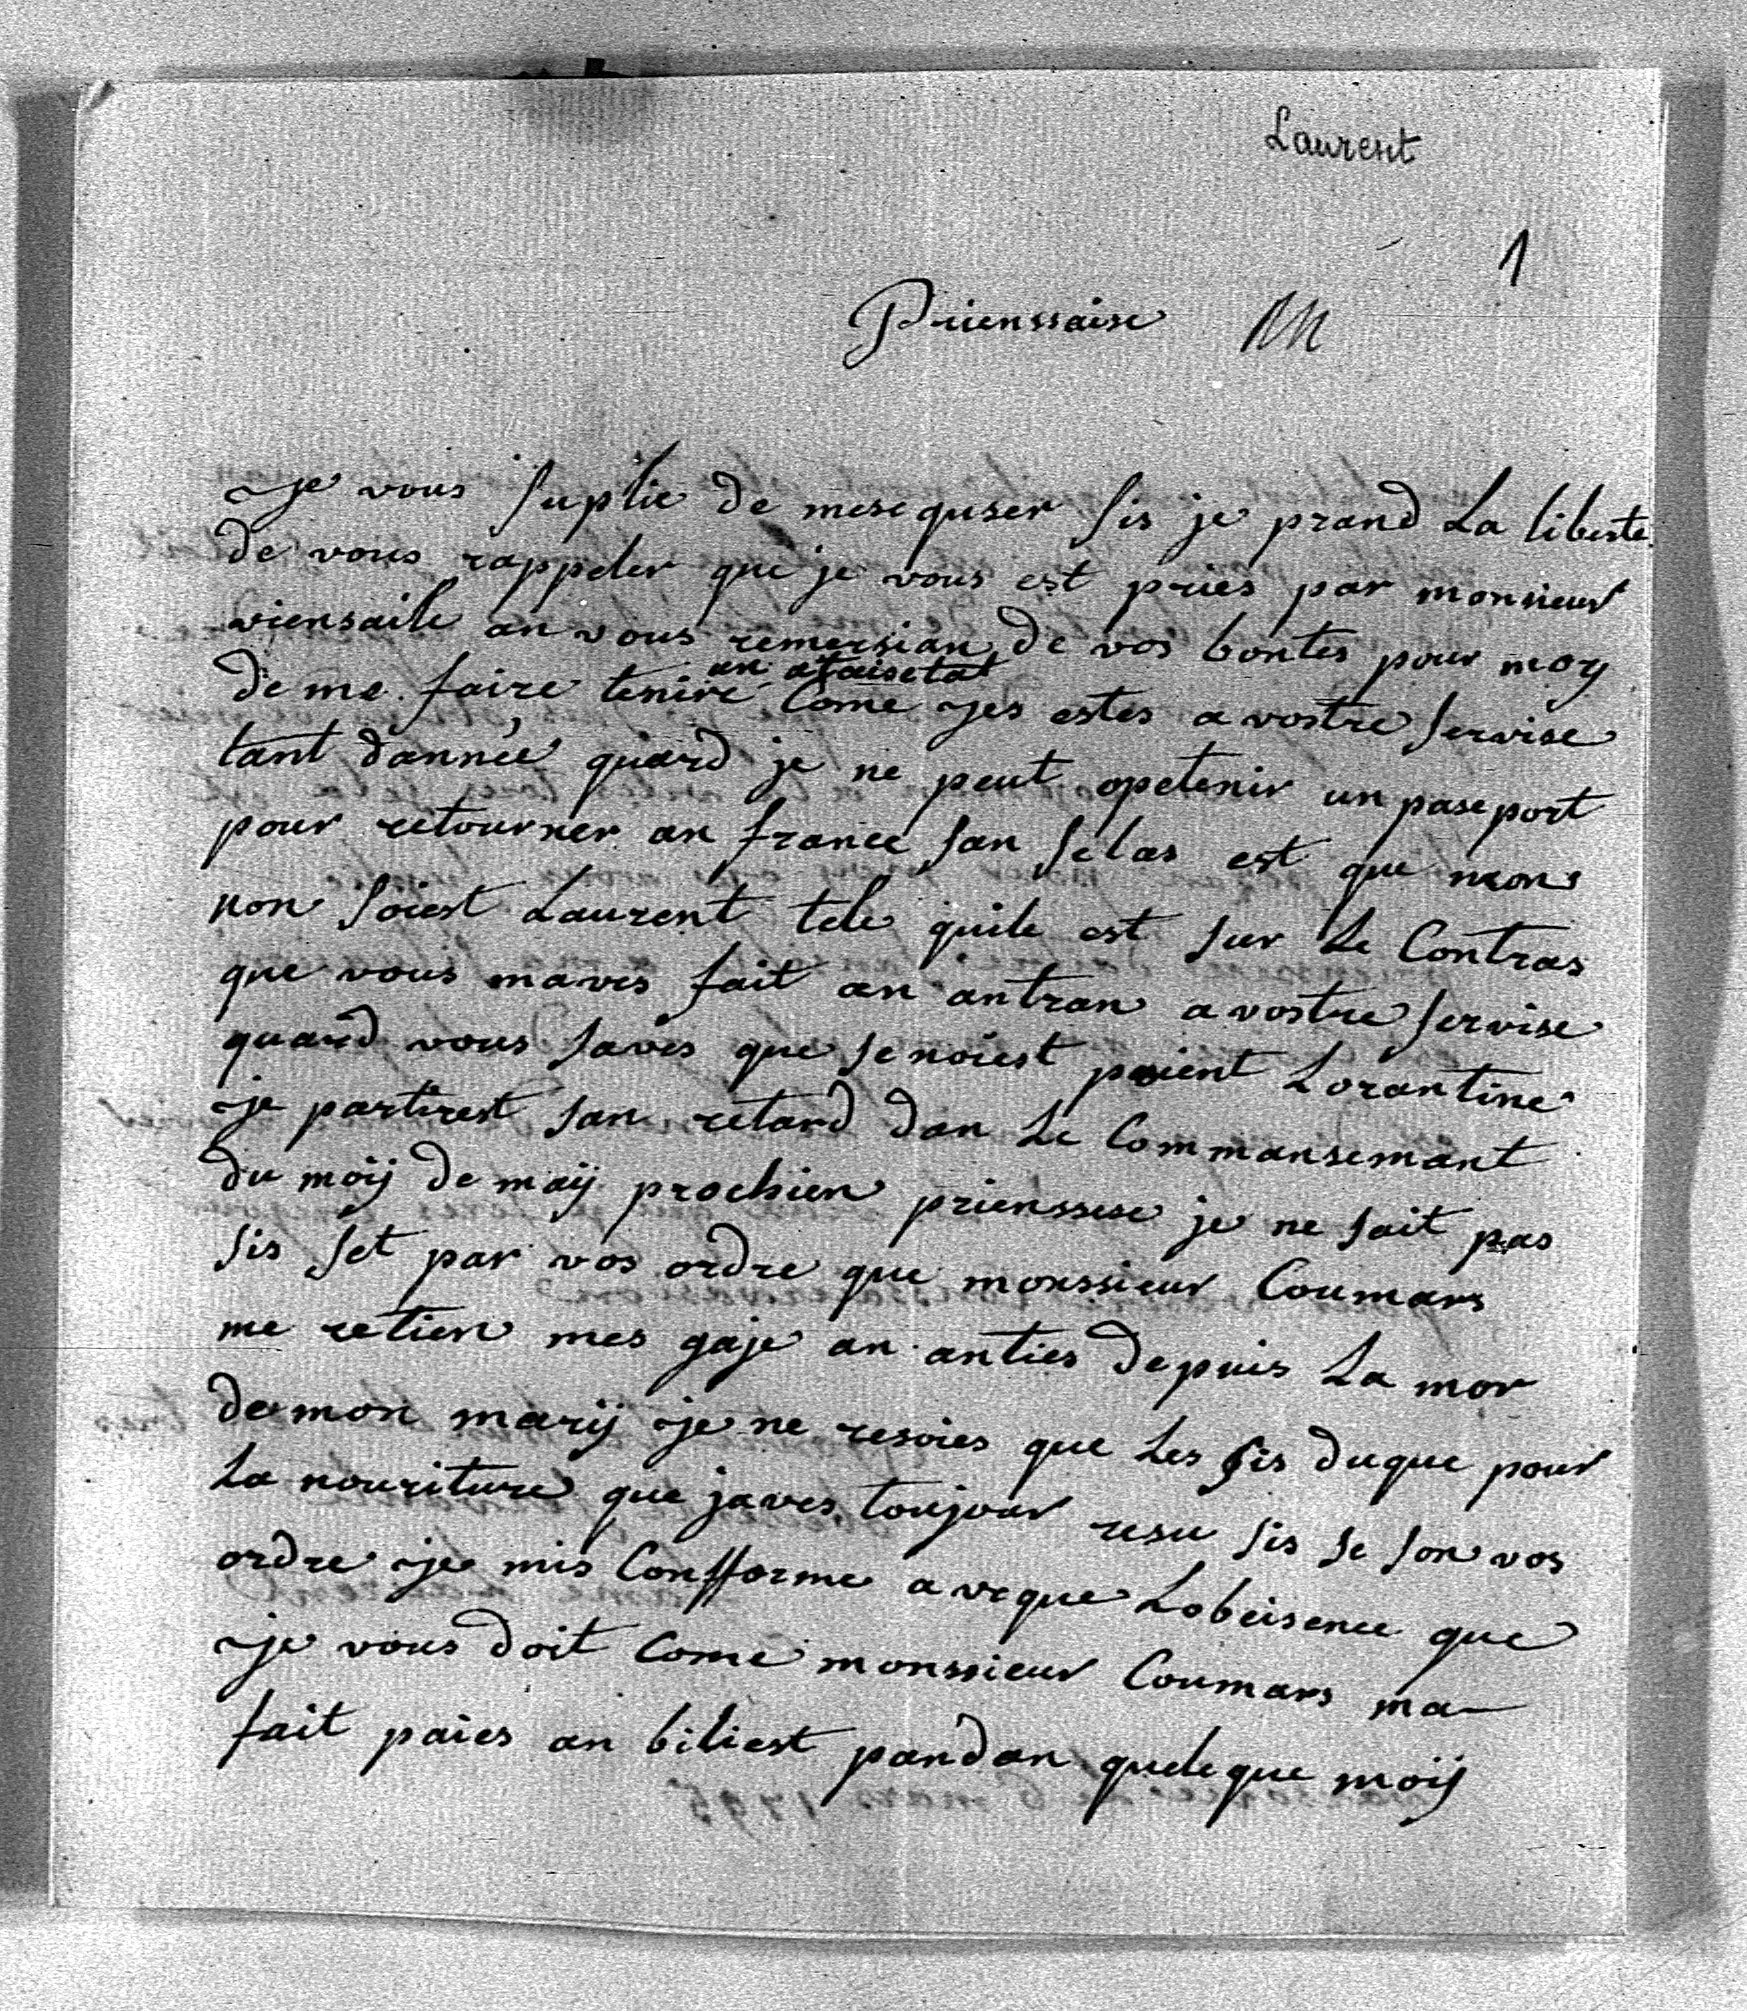 Laurent
1
Prienssaise
Je vous suplie de mesequser sis je prand La liberte
de vous rappeler que je vous est pries par monsieur
viensaile an vous remersian de vos bontes pour moy
an ataisetat
de me faire tenire Come jes estes a vostre servise
tant dannée quard je ne peut opetenir un paseport
pour retourner an france san selas est que mon
non soiest Laurent tele quile est sur Le Contras
que vous maves fait an antran a vostre servise
quard vous saves que se noiest poient Lorantine
je partirest san retard dan Le Commansemant
du moij de maij prochien prienssese je ne sait pas
sis set par vos ordre que monssieur Coumars
me retien mes gaje an anties depuis La mor
de mon marij je ne resoies que Les sis duque pour
La nouriture que javes toujour resu sis se son vos
ordre je mis Confforme aveque Lobeisence que
je vous doit Come monssieur Coumars ma
fait paies an biliest pandan queleque moij